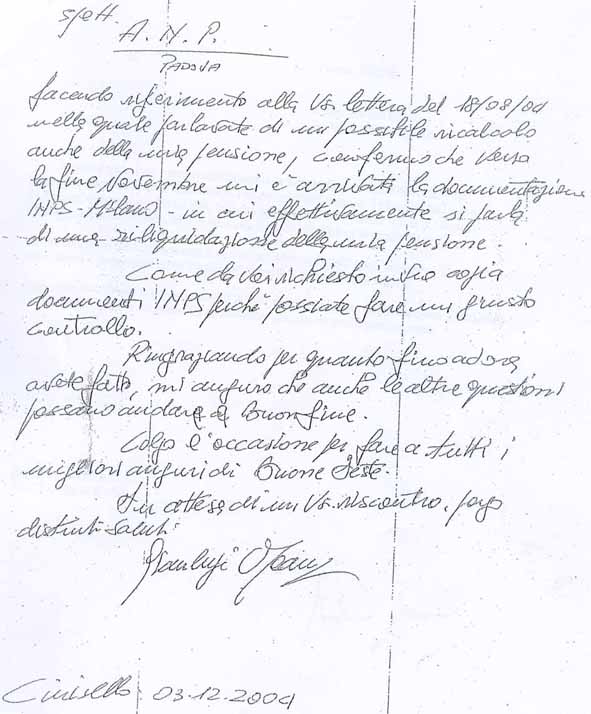 spett.
A.N.P.
PADOVA
facendo riferimento alla Vs. lettera del 18/08/04
nella quale parlavate di un possibile ricalcolo
anche della mia pensione, confermo che verso
la fine Novembre mi è arrivata la documentazione
INPS-Milano - in cui effettivamente si parla
di una riliquidazione della mia pensione.
Come da Voi richiesto invio copia
documenti INPS perché possiate fare un giusto
controllo.
Ringraziando per quanto fino adora
avete fatto, mi auguro che anche le altre questioni
possano andare a buon fine.
Colgo l'occasione per fare a tutti i
migliori auguri di Buone Feste.
In attesa di un Vs. riscontro, porgo
distinti saluti
Gianluigi
Cinisello 03.12.2004